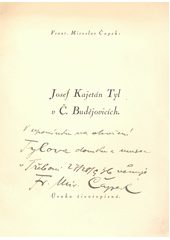 Frant. Miroslav Čapek:
Josef Kajetán Tyl
v Č. Budějovicích.
V upomínku na otevření
Tylova domku a musea
v Třeboni
Fr. Mir. Čapek
Úcoka životopisná.